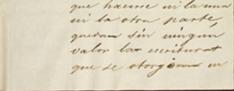 que haeme ni la una
ni la otra parte,
quedan sin ningun
valor las escrituras
que se otorguen en